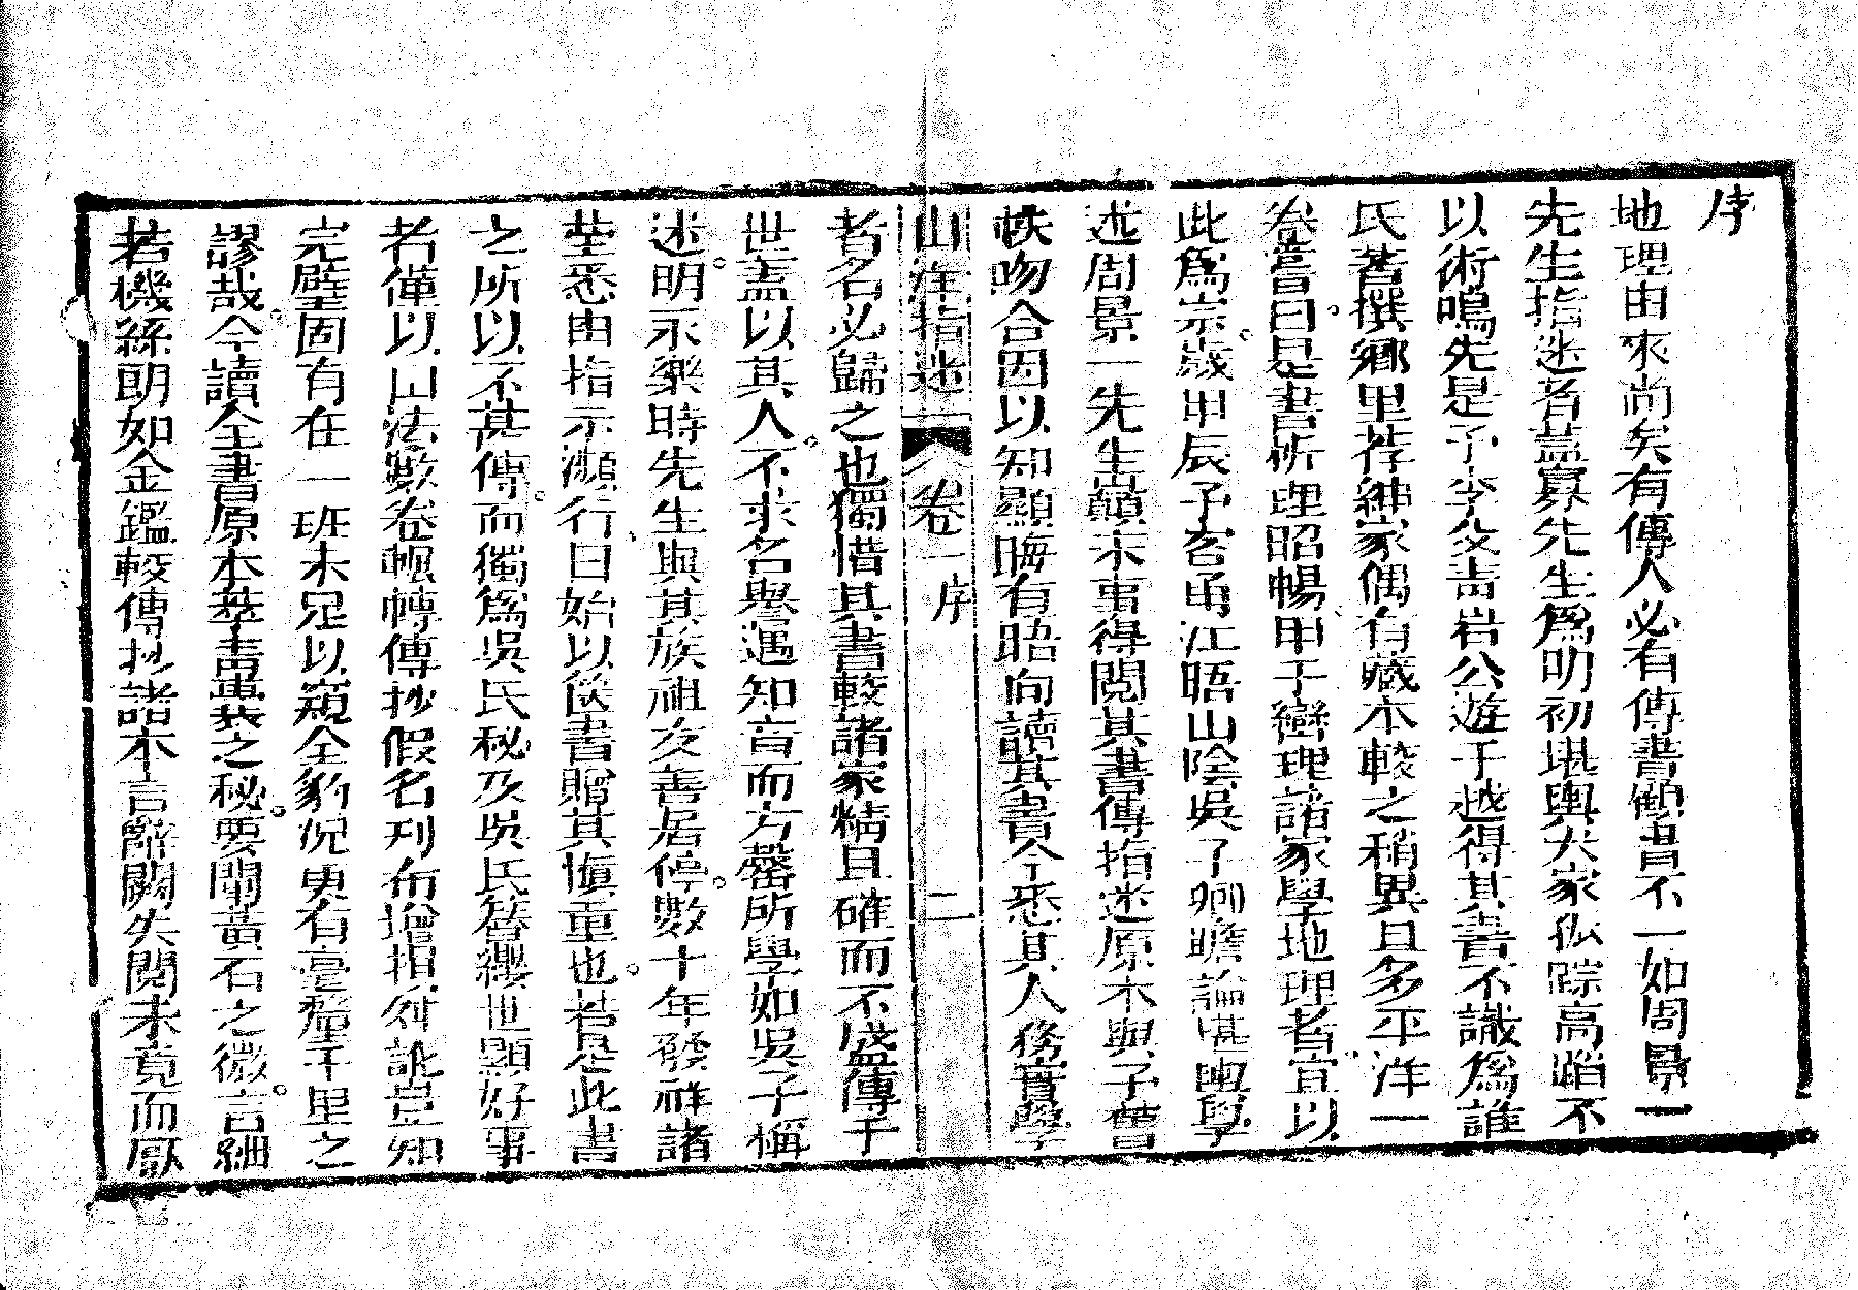 序
地理由來尚矣有傳人必有傳書顧書不一如周景一
先生指迷者蓋寡先生爲明初堪輿大家弘踪高蹈不
以術鳴先是予李父青岩公遊于越得其書不識爲誰
氏著撰鄉里荐紳家偶有藏本較之稍異且多平洋一
卷嘗曰是書析理昭暢甲于巒理諸家學地理者宜以
此爲宗歲甲辰予客甬江晤山陰吳子卿瞻論堪輿學
述周景一先生顛末事得閱其書傳指迷原本與予曾
帙吻合因以知顯晦有時向讀其書今悉其人務實學
山洋指迷 卷一序 二
者名必歸之也獨惜其書較諸家精且確而不盛傳于
世蓋以其人不求名譽遇知音而方罄所學如吳子稱
述明永樂時先生與其族祖友善居停數十年發祥諸
塋悉由指示瀕行日始以遺書贈其慎重也若是此書
之所以不甚傳而獨爲吳氏秘及吳氏簪纓世顯好事
者僅以山法數卷輾轉傳抄假名刋布增損舛訛豈知
完璧固有在一班未足以窺全豹况更有毫釐千里之
謬哉今讀全書原本萃青囊之秘要闡黃石之微言細
若機絲朗如金鑑較傳抄諸本言辭闕失閱未竟而厭